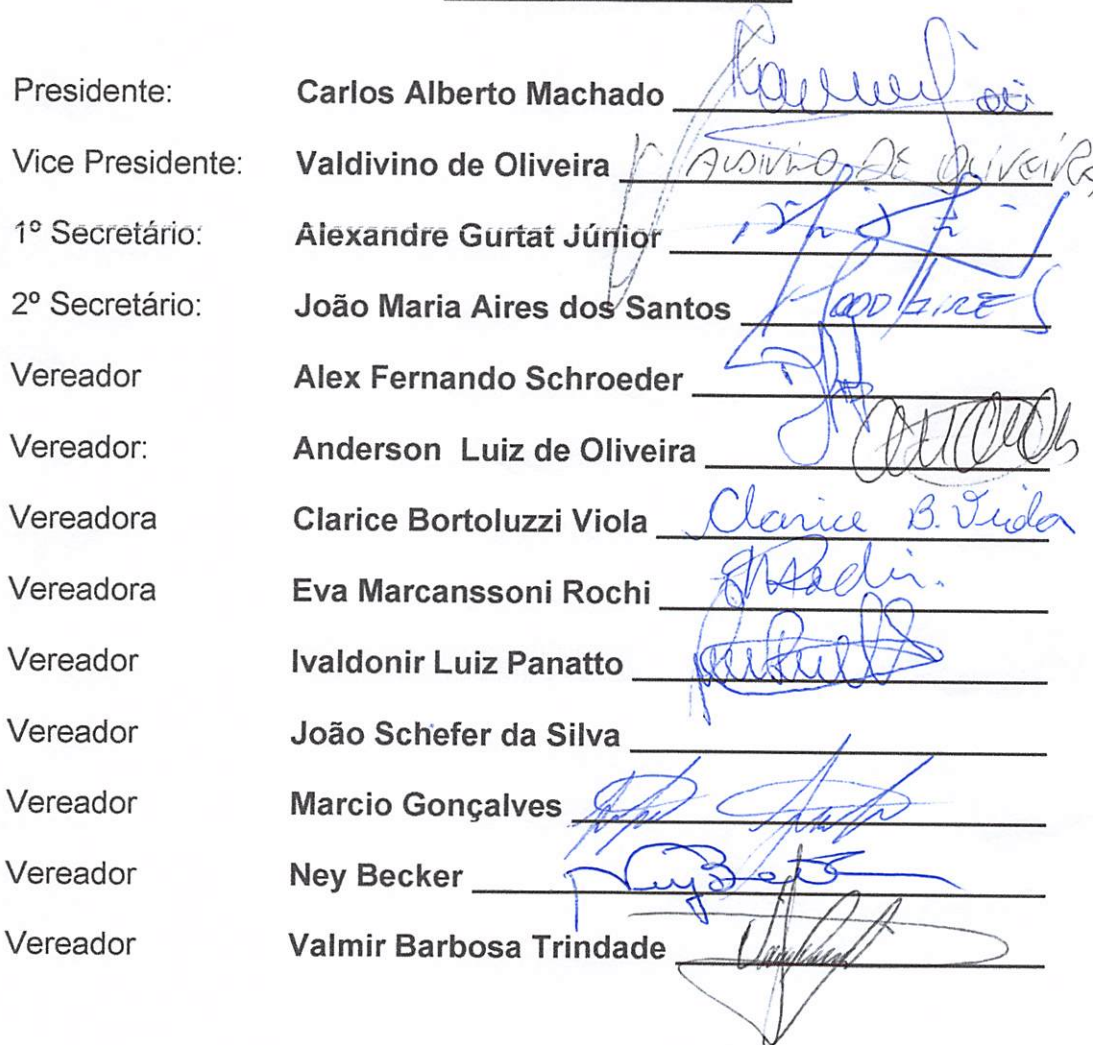 Presidente: Carlos Alberto Machado
Vice Presidente: Valdivino de Oliveira VALDIVINO DE OLIVEIRA
1º Secretário: Alexandre Gurtat Júnior
2º Secretário: João Maria Aires dos Santos JOAO AIRES
Vereador Alex Fernando Schroeder
Vereador: Anderson Luiz de Oliveira
Vereadora Clarice Bortoluzzi Viola Clarice B. Viola
Vereadora Eva Marcanssoni Rochi
Vereador Ivaldonir Luiz Panatto
Vereador João Schefer da Silva
Vereador Marcio Gonçalves
Vereador Ney Becker
Vereador Valmir Barbosa Trindade